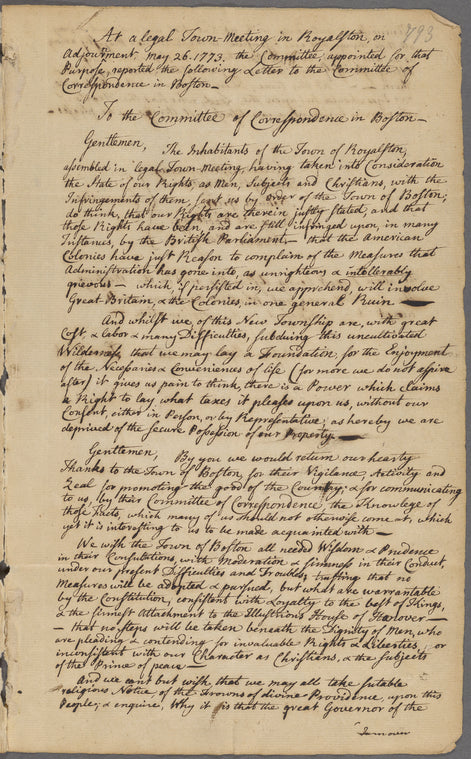 793
At a legal Town-Meeting in Royalston, on
Adjournment, May 26. 1773, the Committee, appointed for that
Purpose, reported the following Letter to the Committee of
Correspondence in Boston—
To the Committee of Correspondence in Boston—
Gentlemen, The Inhabitants of the Town of Royalston,
assembled in legal Town-Meeting, having taken into Consideration
the State of our Rights, as Men, Subjects and Christians, with the
Infringements of them, sent us by order of the Town of Boston;
do think, that our Rights are therein justly stated, and that
those Rights have been, and are still infringed upon, in many
Instances, by the British Parliament — that the American
Colonies have just Reason to complain of the Measures that
Administration has gone into, as unrighteous & intollerably
grievous — which if persisted in, we apprehend, will involve
Great Britain, & the Colonies, in one general Ruin —
And whilst we, of this New Township are, with great
Cost, & Labor & many Difficulties, subduing this uncultivated
Wilderness, that we may lay a Foundation for the Enjoyment
of the Necessaries & Conveniences of life (for more we do not aspire
after) it gives us pain to think, there is a Power which claims
a Right to lay what taxes it pleases upon us, without our
Consent, either in Person, or by Representative; as hereby we are
deprived of the secure Possession of our Property. —
Gentlemen, By you we would return our hearty
Thanks to the Town of Boston, for their Vigilance, Activity and
Zeal for promoting the good of the Country; & for communicating
to us, by their Committee of Correspondence, the Knowlege of
those Facts, which many of us should not otherwise come at, which
yet it is interesting to us to be made acquainted with —
We wish the Town of Boston all needed Wisdom & Prudence
in their Consultations, with Moderation & firmness in their Conduct,
under our present Difficulties and Troubles, trusting that no
Measures will be adopted & pursued, but what are warrantable
by the Constitution, consistent with Loyalty to the best of Kings,
& the firmest Attachment to the Illustrious House of Hanover —
— that no steps will be taken beneath the Dignity of Men, who
are pleading & contending for invaluable Rights & Liberties, or
inconsistent with our Character as Christians, & the subjects
of the Prince of peace —
And we cant but wish that we may all take sutable
religious Notice, of the Frowns of divine Providence, upon this
People; & enquire, Why it is that the great Governor of the
Turnover